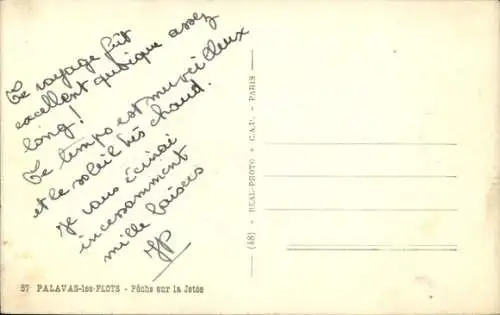 Le voyage fût
excellent quoique assez
long!
Le temps est merveilleux
et le soleil très chaud.
Je vous écrirai
incessamment
mille baisers
JP
57 PALAVAS-les-FLOTS - Pêche sur la Jetée
(48) - REAL-PHOTO - C.A.P. - PARIS